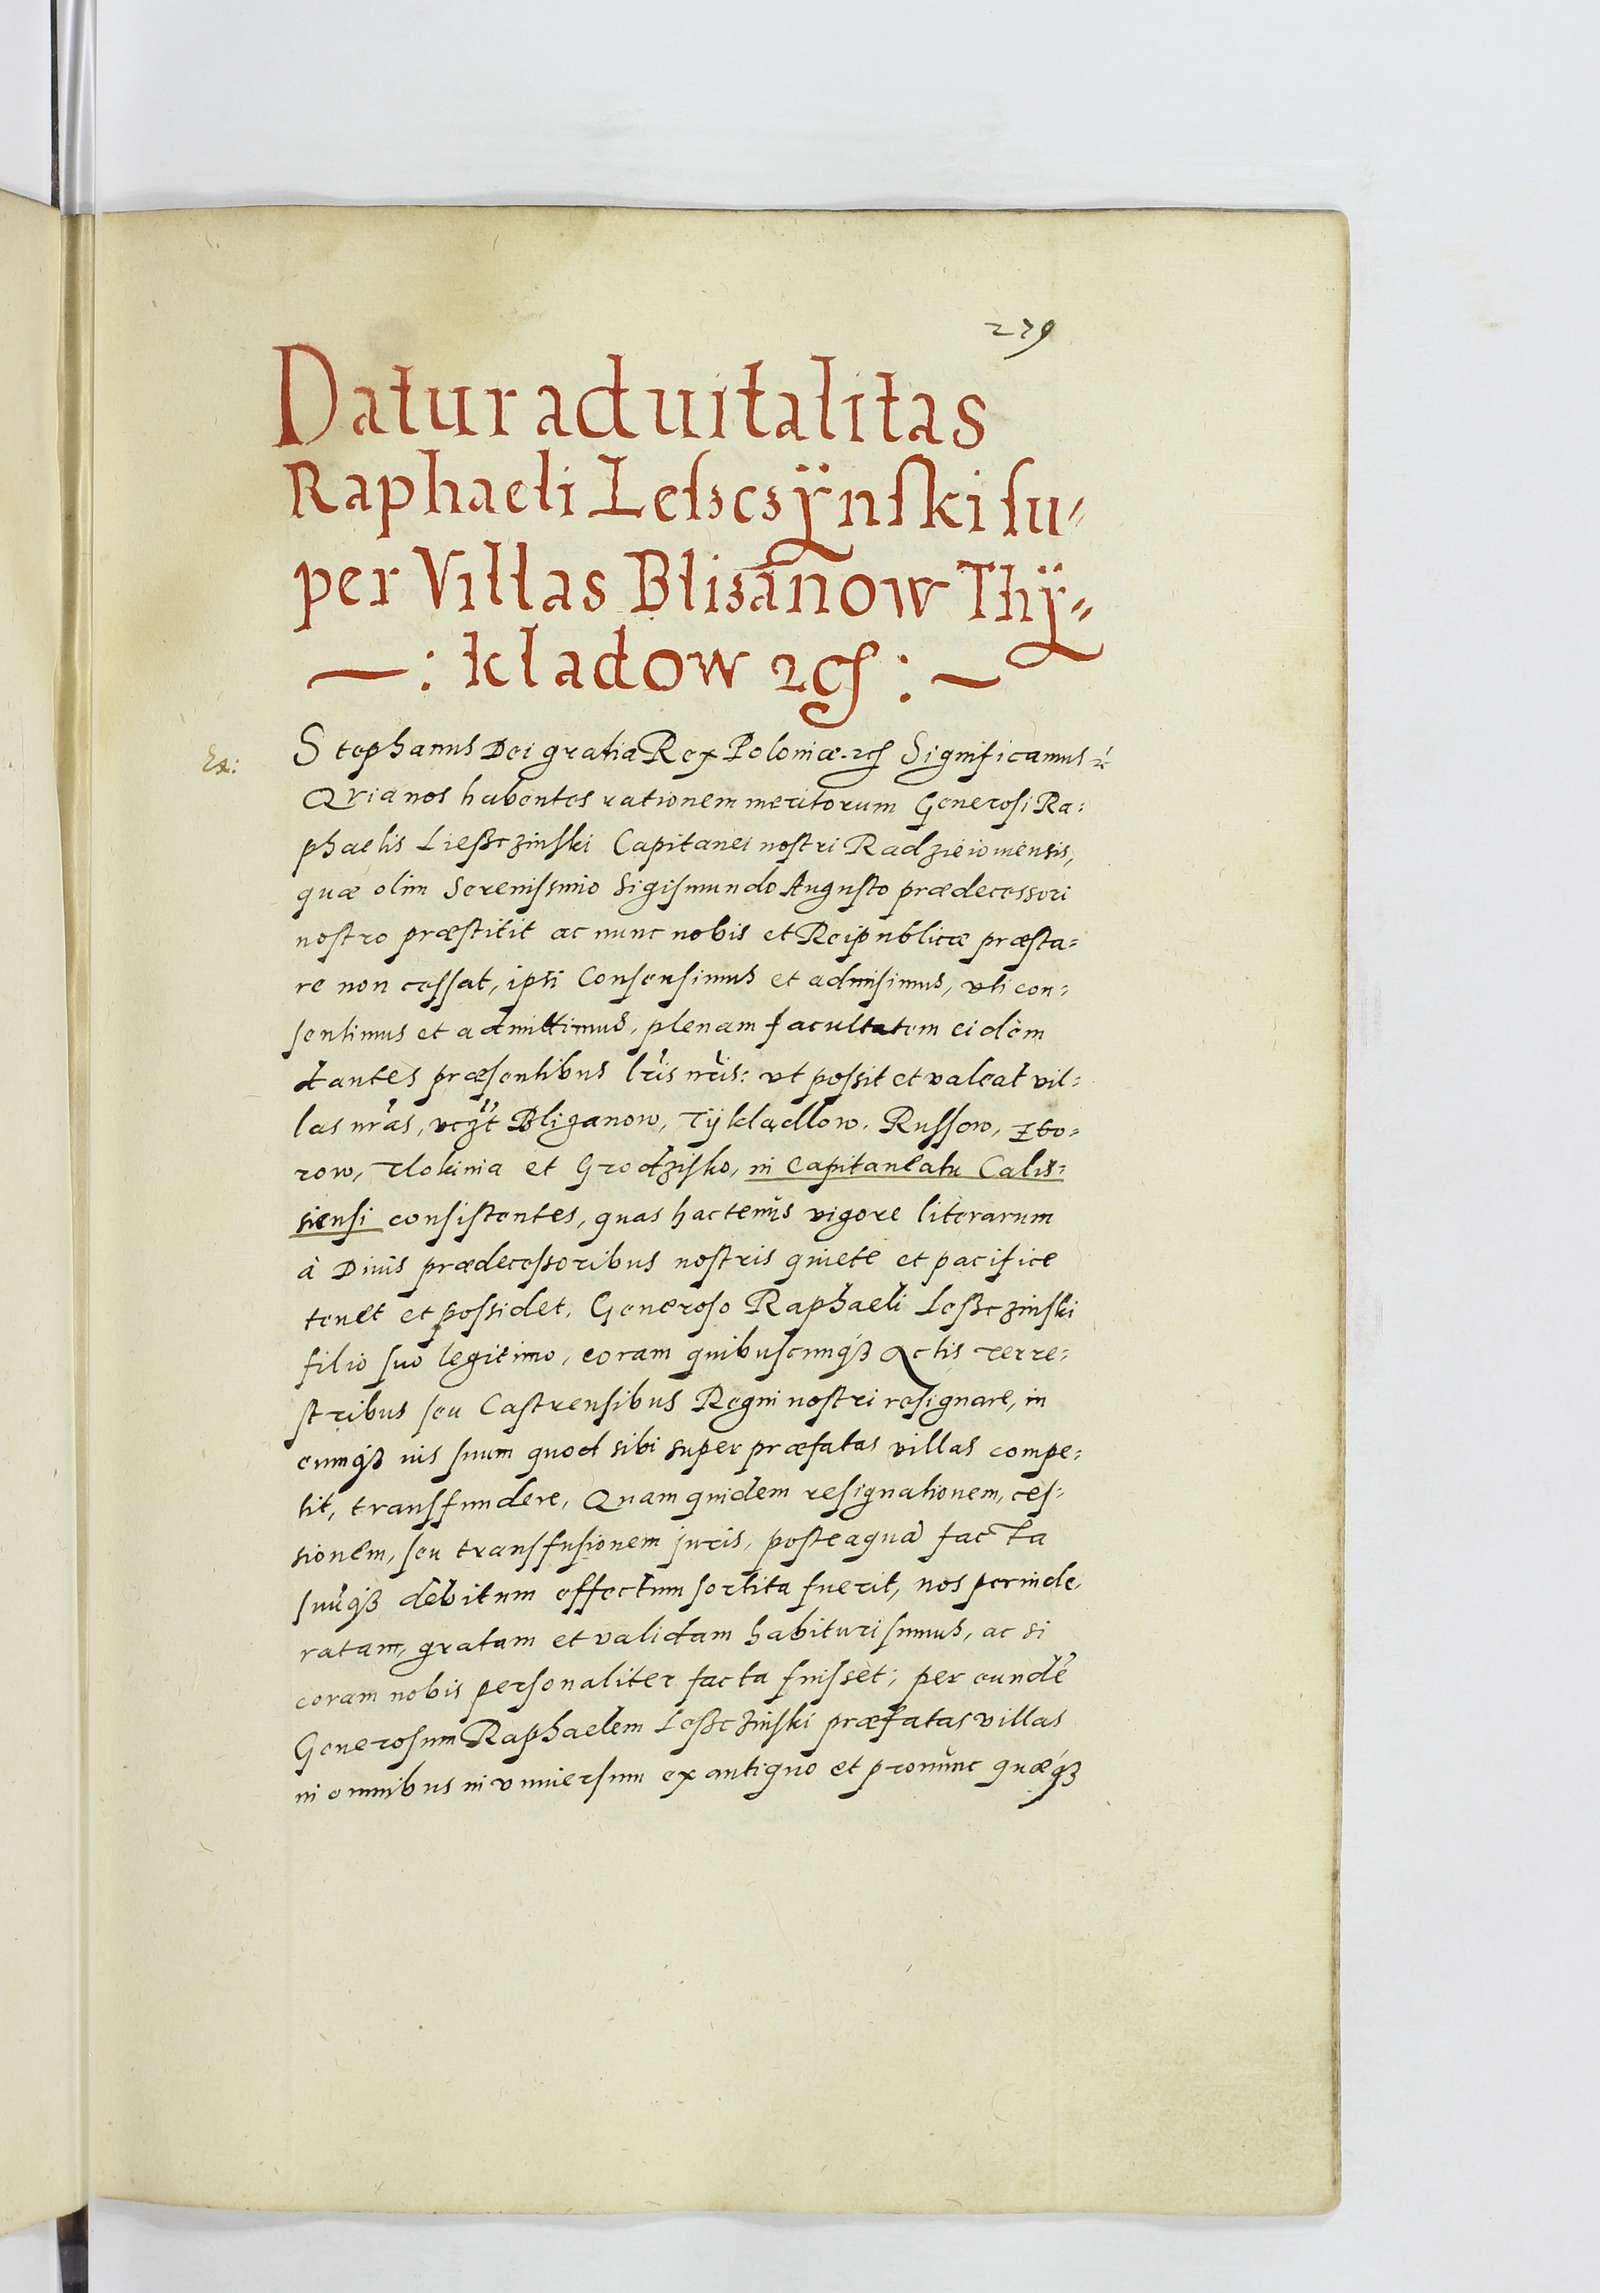 279
Datur aduitalitas
Raphaeli Lesscsÿnski su=
per Villas Blisanow Thÿ=
: kladow etc :
Stephanus Dei gratia Rex Poloniæ etc Significamus etc
Quia nos habentes rationem meritorum Generosi Ra=
phaelis Liesczinski Capitanei nostri Radzieiouiensis,
quæ olim Serenissimo Sigismundo Augusto prædecessori
nostro præstitit ac nunc nobis et Reipublicæ præsta=
re non cessat, ipsi Consensimus et admisimus, vti con=
sentimus et admittimus, plenam facultatem eidem
dantes præsentibus lris nris: vt possit et valeat vil=
las nras, vczt Blizanow, Tÿkladlow, Russow, Zbo=
row, Tlokinia et Grodzisko, in Capitaneatu Calis=
siensi consistentes, quas hactenus vigore literarum
à Diuis prædecessoribus nostris quiete et pacifice
tenet et possidet, Generoso Raphaeli Lesczinski
filio suo legitimo, coram quibuscunqȝ Actis Terre=
stribus seu Castrensibus Regni nostri resignare, in
eumqȝ ius suum quod sibi super præfatas villas compe=
tit, transfundere, Quam quidem resignationem, ces=
sionem, seu transfusionem juris, posteaquã facta
suũqȝ debitum effectum sortita fuerit, nos perinde
ratam, gratam et validam habituri sumus, ac si
coram nobis personaliter facta fuisset; per eundẽ
Generosum Raphaelem Lesczinski præfatas villas
in omnibus in vniuersum ex antiquo et pronunc quæqȝ